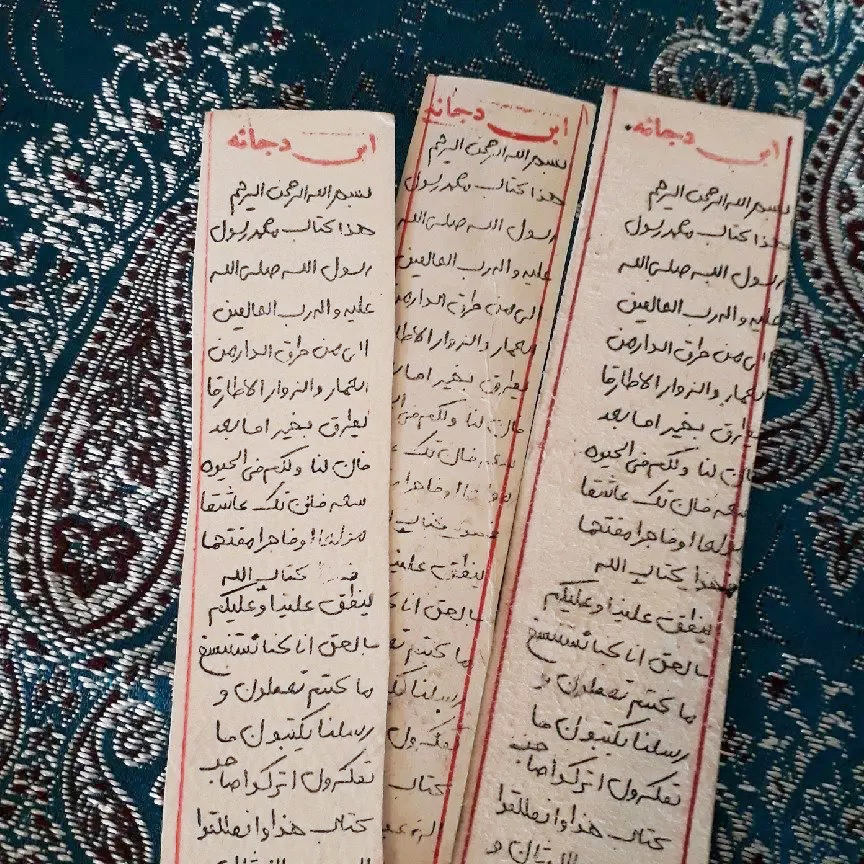 ابی دجانه
بسم الله الرحمن الرحیم
هذا کتاب محمد رسول
رسول الله صلی الله
علیه و اله رب العالمین
الی من طرق الدار من
العمار و الزوار الا طارقا
یطرق بخیر اما بعد
فان لنا و لکم فی الحیوه
سعه فان تک عاشقا
مولعا او فاجرا مقتحما
کتاب الله
ینطق علینا و علیکم
بالحق انا کنا نستنسخ
ما کنتم تعملون و
رسلنا یکتبون ما
تمکرون اترکوا صاحب
کتاب هذا و انطلقوا
ابی دجانه
بسم الله الرحمن الرحیم
هذا کتاب محمد رسول
رسول الله صلی الله
علیه و اله رب العالمین
الی من طرق الدار من
العمار و الزوار الا
یطرق بخیر اما
فان لنا و لکم فی
سعه فان تک
او فاجرا
کتاب
ینطق علینا
بالحق انا
ما کنتم
رسلنا
تمکرون
کتاب
ابی دجانه
بسم الله الرحمن الرحیم
هذا کتاب محمد رسول
رسول الله صلی الله
علیه و اله رب العالمین
الی من طرق الدار من
العمار و الزوار الا طارقا
یطرق بخیر اما بعد
فان لنا و لکم فی الحیوه
سعه فان تک عاشقا
مولعا او فاجرا مقتحما
فهذا کتاب الله
ینطق علینا و علیکم
بالحق انا کنا نستنسخ
ما کنتم تعملون و
رسلنا یکتبون ما
تمکرون اترکوا صاحب
کتاب هذا و انطلقوا